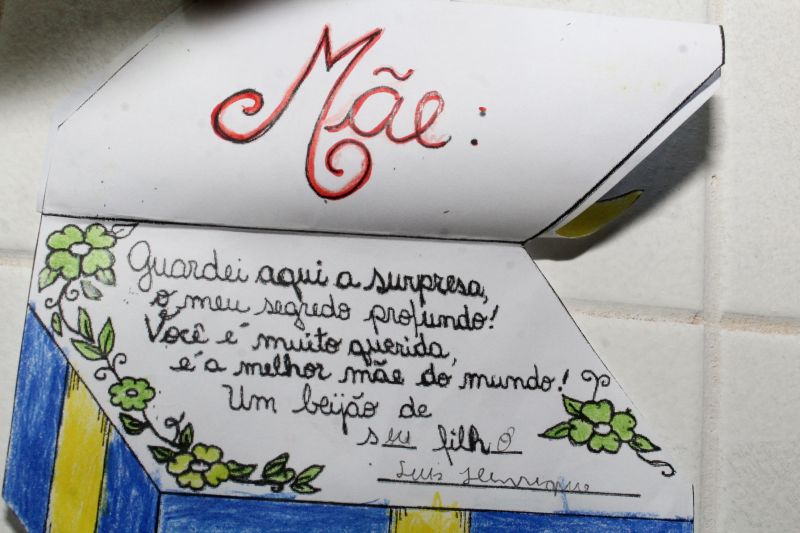 Mãe:
Guardei aqui a surpresa,
o meu segredo profundo!
Você é muito querida,
é a melhor mãe do mundo!
Um beijão de
seu filho
Luis Henrique